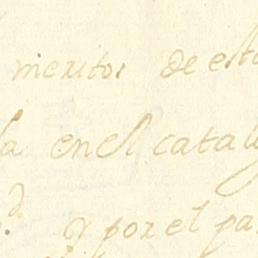 meritos de esto
la en el catalo
d. y por el pa